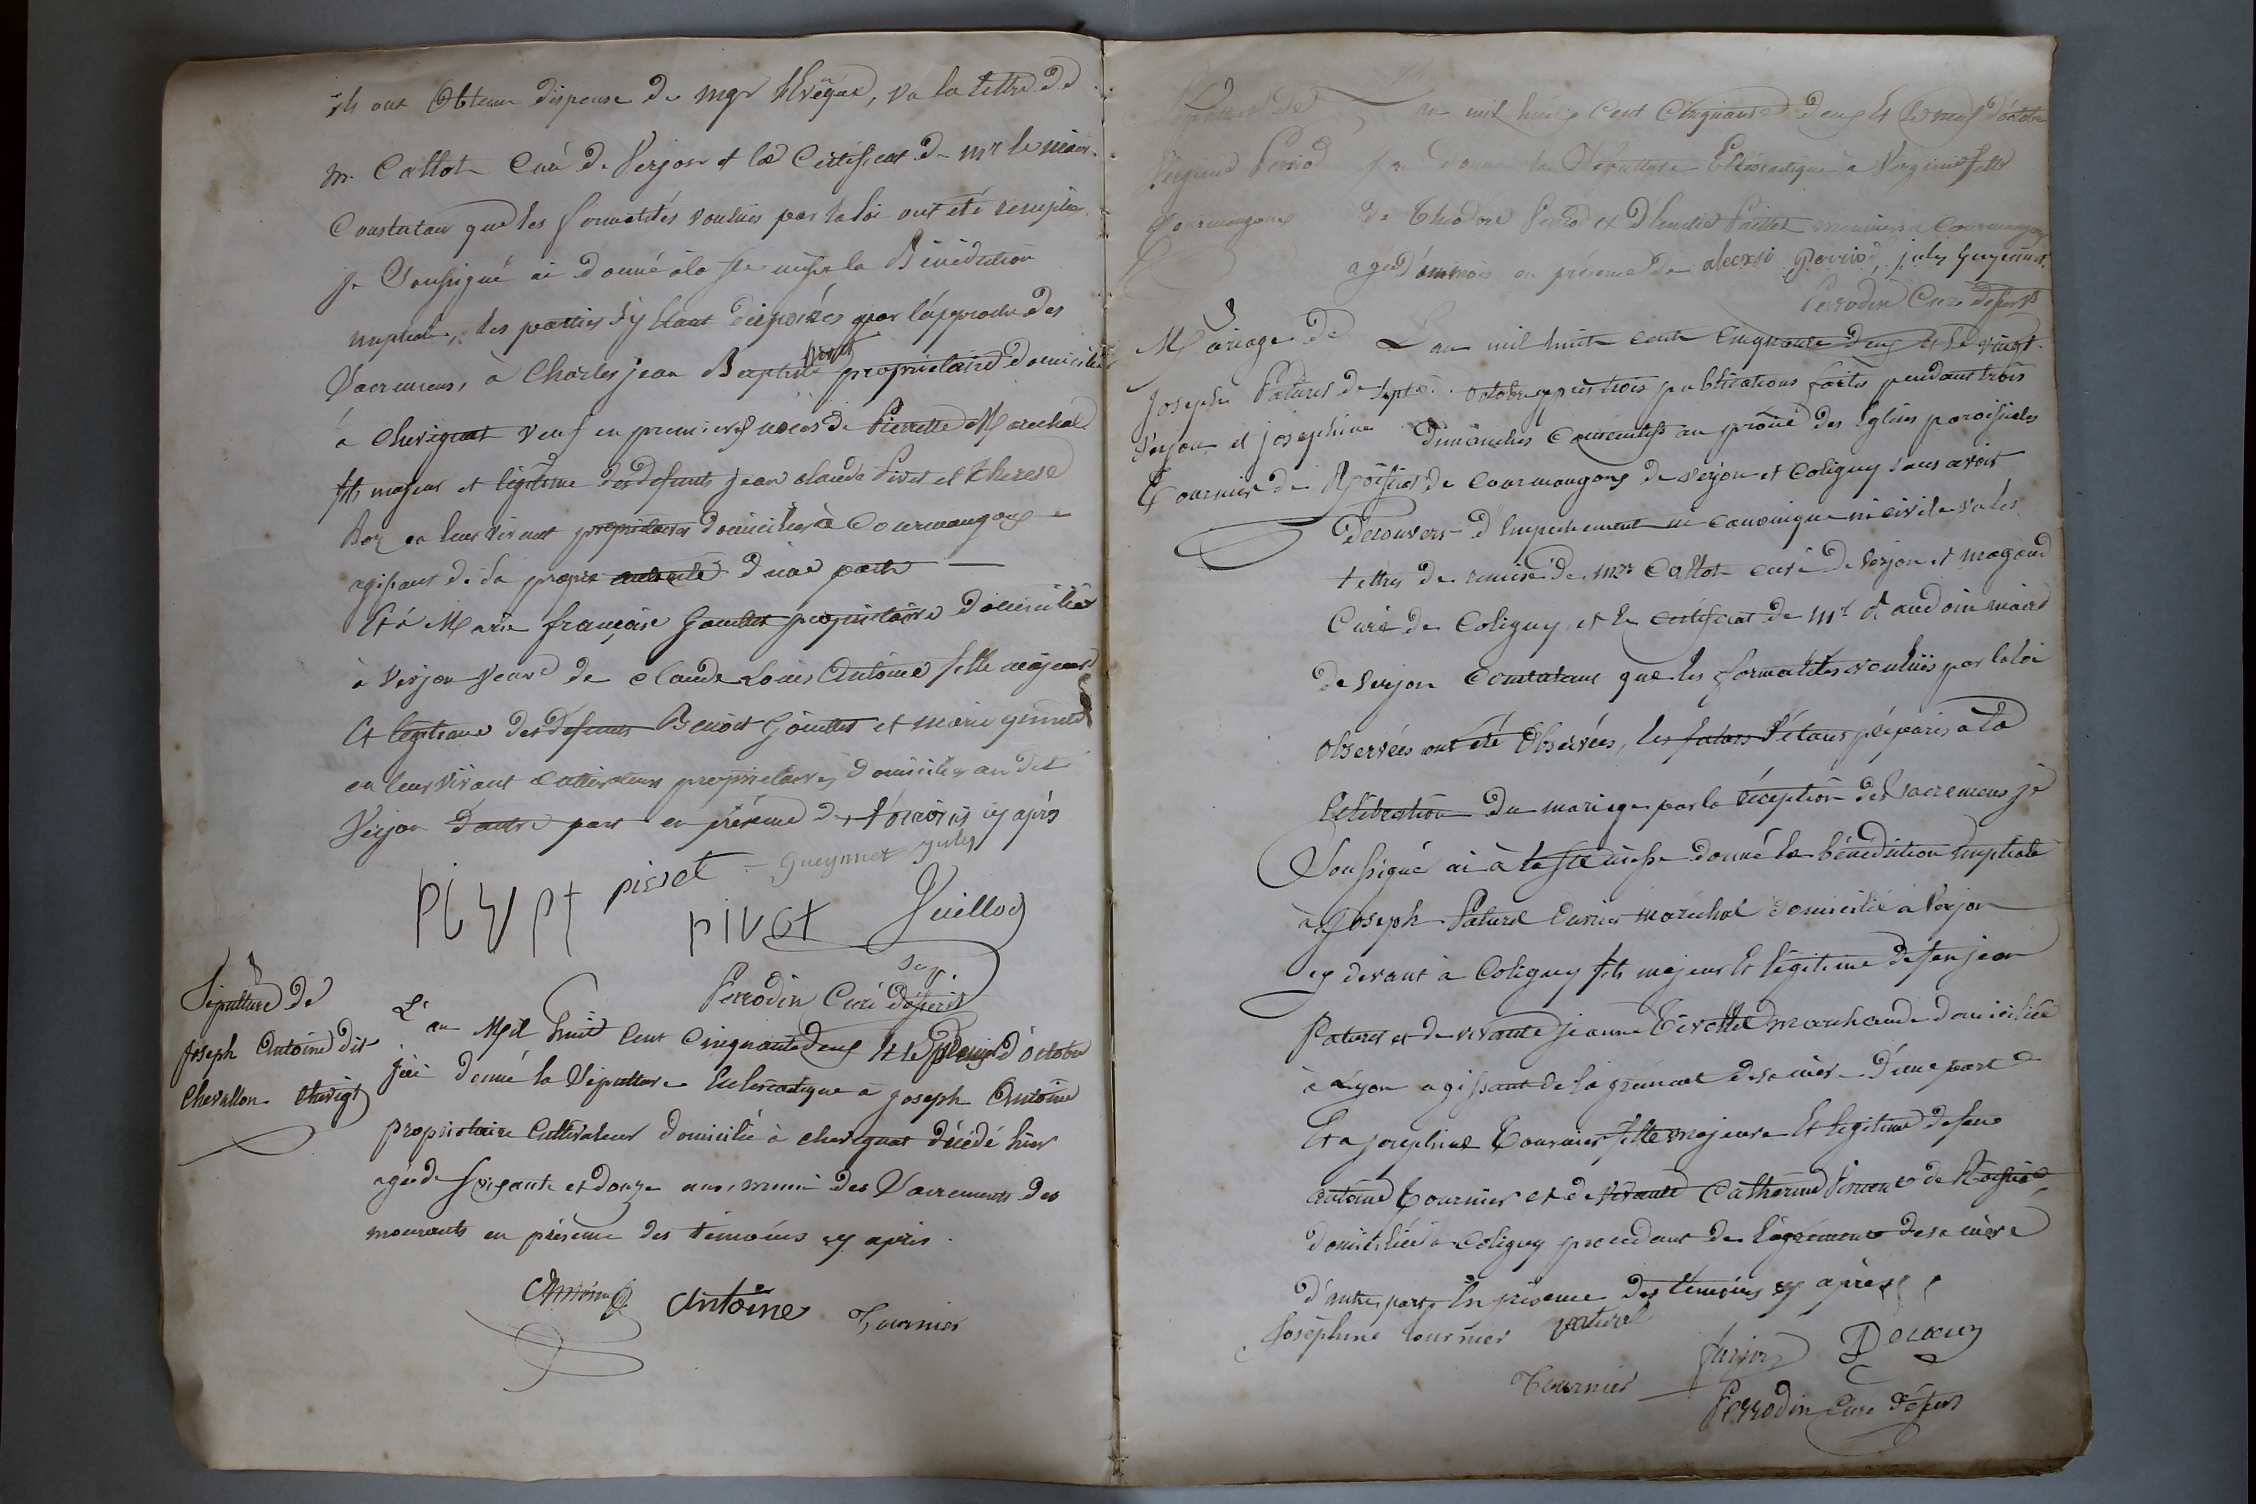 ils ont obtenu dispense de mgr l'Evêque, vu la lettre de
mr Callot Curé de Verjon et le Certificat de mr le maire
Constatant que les formalités voulues par la loi ont été remplies
je Soussigné ai donné à la Ste messe la Bénédiction
nuptiale, les parties s'y étant disposées par l'approche des
Sacremens, à Charles jean Baptiste pivet propriétaire domicilié
à chevignat veuf en premieres nôces de Pierrette Marechal
fils majeur et légitime des defunts jean claude Pivet et therese
en leur vivant propriétaires domiciliés à Courmangoux
agissant de sa propre autorité d'une part
Et à Marie françoise Gouillet propriétaire domiciliée
à verjon veuve de claude Louis Antoine fille majeure
Et légitime des defunts Benoit Gouillet et marie
en leur vivant cultivateurs propriétaires domiciliés au dit
Verjon d'autre part en présence des témoins cy après
pivet pisset Gueynnet july
pivot Vuillod
Perrodin Curé
Sépulture de
joseph Antoine dit
Chevallon chevigt
L'an Mil huit cent cinquante deux et le premier d'octobre
j'ai donné la Sépulture Ecclésiastique à joseph Antoine
propriétaire Cultivateur domicilié à chevignat décédé hier
agé de soixante et douze ans muni des Sacrements des
mourants en présence des témoins cy après
Antoine Antoine Tournier
Sépulture de
Virginie Perrod
Courmangoux
L'an mil huit cent cinquante deux et le neuf d'octobre
j'ai donné la Sépulture Ecclésiastique à Virginie fille
de Théodore Perrod et d' meuniers à Courmangoux
agée d' mois en présence de alexsi july Gueynnet
Perrodin Curé desservt
Mariage de
Joseph Paturel de
Verjon et joséphine
Tournier de Roissiat
L'an mil huit cent cinquante deux et le vingt
sept octobre après trois publications faites pendant trois
dimanches consécutifs au prône des Eglises paroissiales
de Courmangoux de verjon et Coligny sans avoir
découvert d'Empechement ni canonique ni civile vu les
lettres de remise de mrs Callot curé de Verjon et magaud
Curé de Coligny et le certificat de mr maire
de Verjon Constatant que les formalités voulues par la loi
observées ont été observées, les futurs s'étant préparés à la
Célébration du mariage par la réception des Sacremens je
Soussigné ai à la ste messe donné la bénédiction nuptiale
à Joseph Paturel ouvrier maréchal domicilié à Verjon
cy devant à Coligny fils majeur et légitime de feu jean
Paturel et de vivante jeanne marchande domiciliée
à Lyon agissant de l'agrément de sa mère d'une part
Et à joséphine Tournier fille majeure et légitime de feu
antoine Tournier et de vivante Catherine de Roissiat
domiciliée à Coligny procédant de l'agrément de sa mère
d'autre part En présence des témoins cy après
Joséphine tournier paturel
Tournier
Perrodin Curé